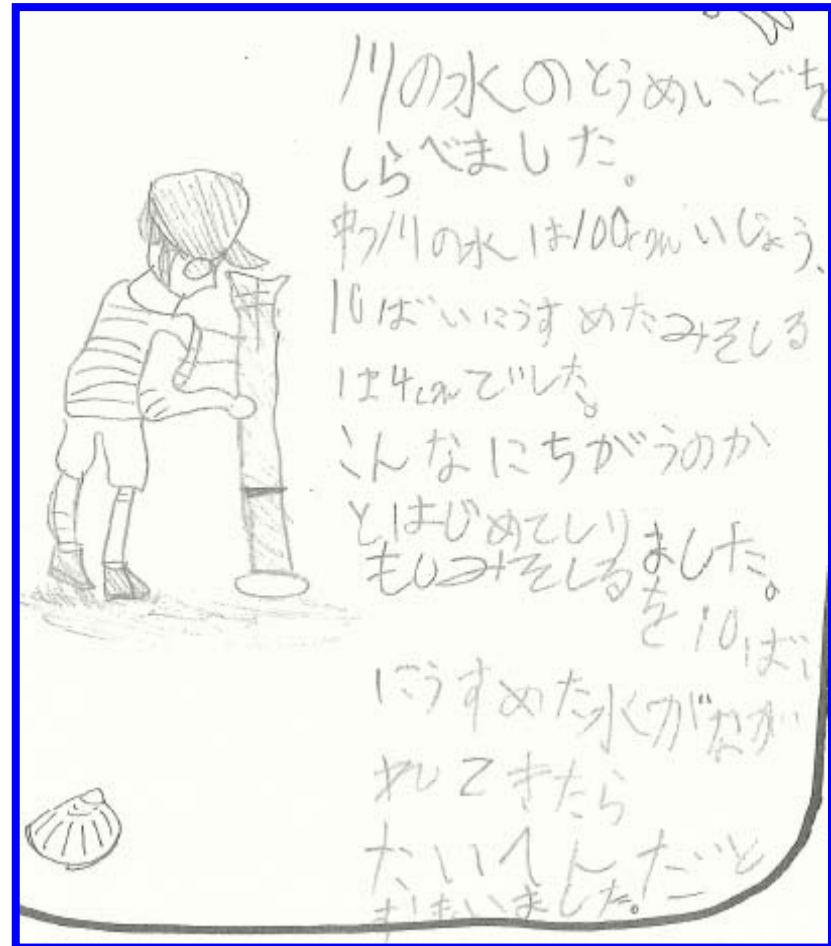 川の水のとうめいどを
しらべました。
川の水は100cmいじょう、
10ばいにうすめたみそしる
は4cmでした。
こんなにちがうのか
とはじめてしり
ました。
もしみそしる
を10ばい
にうすめた水がなが
れてきたら
たいへんだと
おもいました。